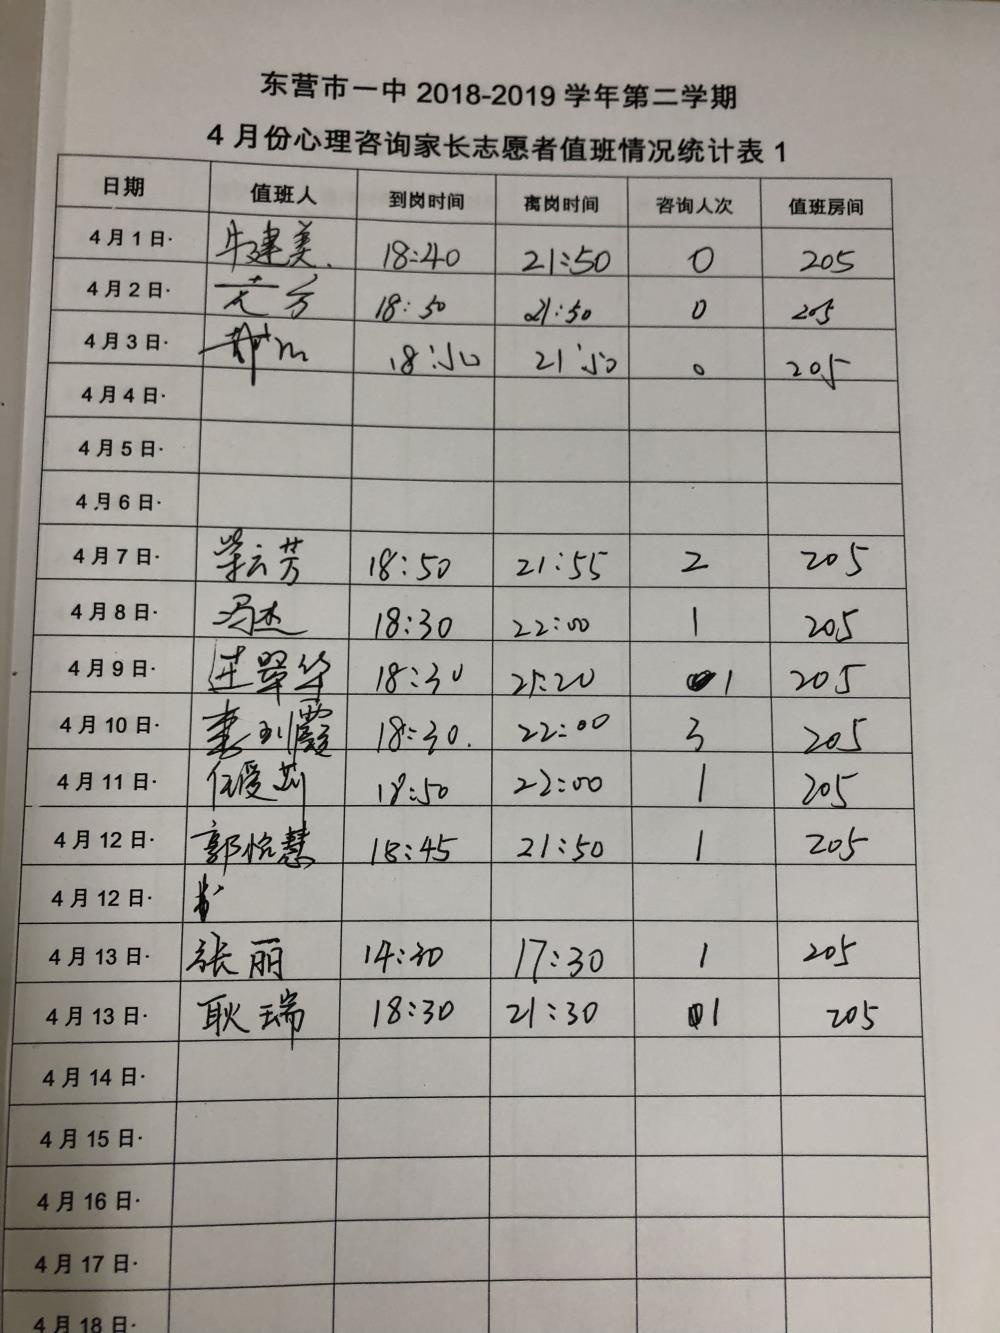 东营市一中 2018-2019 学年第二学期
4 月份心理咨询家长志愿者值班情况统计表 1
日期 值班人 到岗时间 离岗时间 咨询人次 值班房间
4 月 1 日· 牛建美 18:40 21:50 0 205
4 月 2 日· 18:50 21:50 0 205
4 月 3 日· 18:50 21:50 0 205
4 月 4 日·
4 月 5 日·
4 月 6 日·
4 月 7 日· 荣云芳 18:50 21:55 2 205
4 月 8 日· 冯杰 18:30 22:00 1 205
4 月 9 日· 18:30 21:20 1 205
4 月 10 日· 18:30 22:00 3 205
4 月 11 日· 任爱莉 18:50 22:00 1 205
4 月 12 日· 郭怡慧 18:45 21:50 1 205
4 月 12 日·
4 月 13 日· 张丽 14:30 17:30 1 205
4 月 13 日· 耿瑞 18:30 21:30 1 205
4 月 14 日·
4 月 15 日·
4 月 16 日·
4 月 17 日·
4 月 18 日·